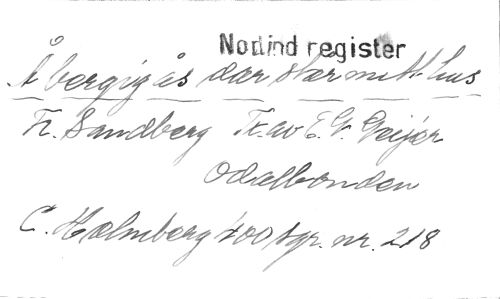 Nodind register
Å bergig ås där står mitt hus
Fr. Sandberg Tr. av E. G. Geijer
Odalbonden
C. Holmberg 200 sgr. nr. 218